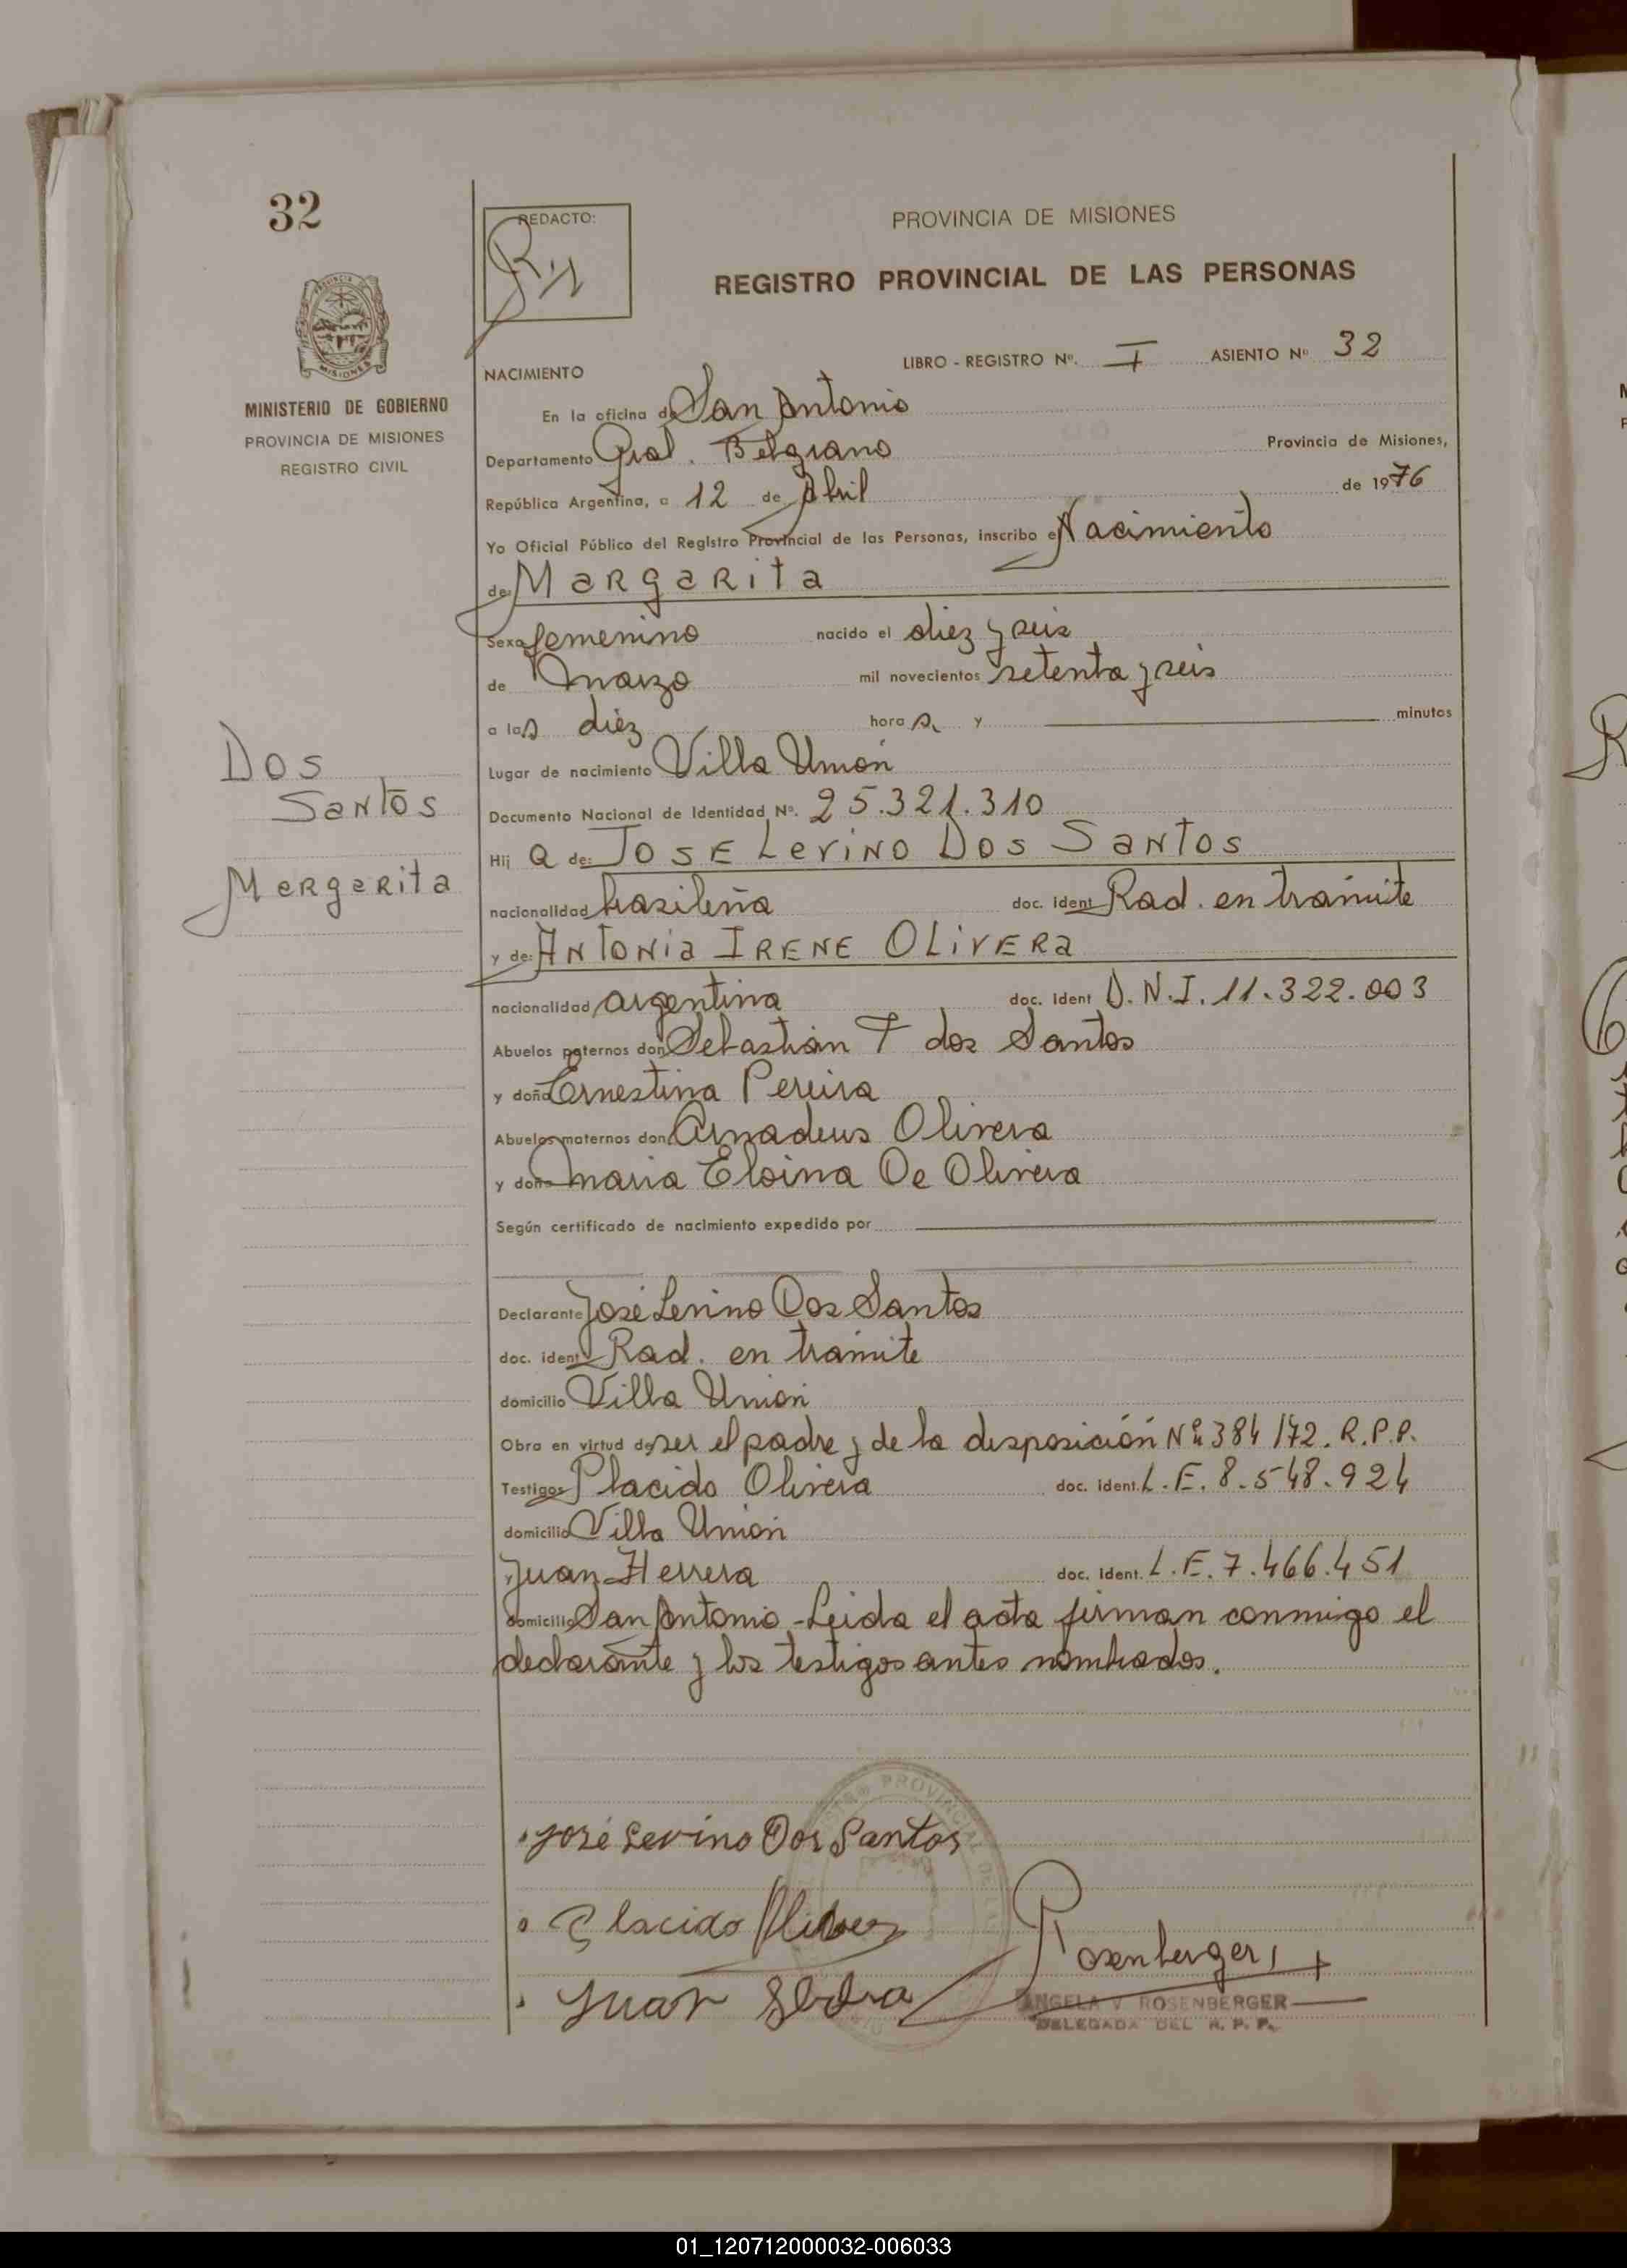 32
REDACTO:
PROVINCIA DE MISIONES
REGISTRO PROVINCIAL DE LAS PERSONAS
MISIONES
MINISTERIO DE GOBIERNO
PROVINCIA DE MISIONES
REGISTRO CIVIL
NACIMIENTO LIBRO - REGISTRO Nº. I ASIENTO Nº 32
En la oficina de San Antonio
Departamento Gral. Belgrano Provincia de Misiones,
República Argentina, a 12 de Abril de 1976
Yo Oficial Público del Registro Provincial de las Personas, inscribo el Nacimiento
de: Margarita
Sexo femenino nacido el diez y seis
de Marzo mil novecientos setenta y seis
a las diez horas y minutos
Lugar de nacimiento Villa Unión
Dos
Santos
Margarita
Documento Nacional de Identidad Nº. 25.321.310
Hij a de: Jose Levino Dos Santos
nacionalidad brasileña doc. ident Rad. en trámite
y de: Antonia Irene Olivera
nacionalidad argentina doc. ident D.N.I. 11.322.003
Abuelos paternos don Sebastián F dos Santos
y doña Ernestina Pereira
Abuelos maternos don Amadeus Olivera
y doña Maria Eloina De Olivera
Según certificado de nacimiento expedido por
Declarante José Levino Dos Santos
doc. ident Rad. en trámite
domicilio Villa Unión
Obra en virtud de ser el padre y de la disposición Nº 384/72. R.P.P.
Testigos Placido Olivera doc. ident. L.E. 8.548.924
domicilio Villa Unión
y Juan Herrera doc. ident. L.E. 7.466.451
domicilio San Antonio - Leida el acta firman conmigo el
declarante y los testigos antes nombrados.
José Levino Dos Santos
Placido
Juan
Rosenberger
ANGELA V ROSENBERGER
DELEGADA DEL R. P. P.
01_120712000032-006033